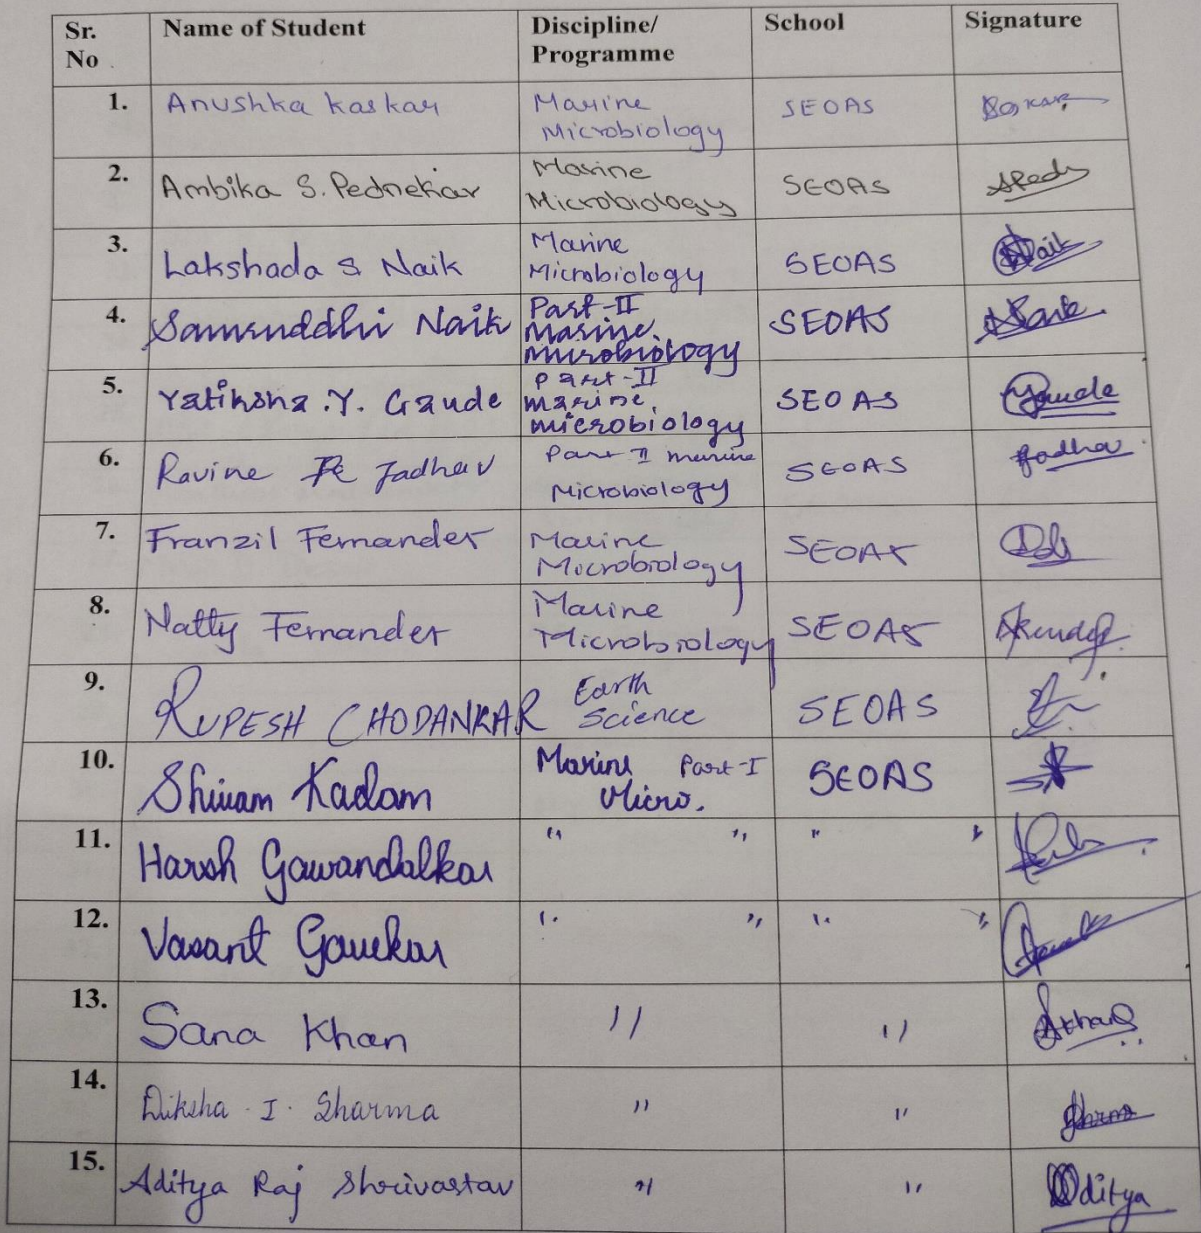 Sr. No Name of Student Discipline/ Programme School Signature
1. Anushka Kaskar Marine Microbiology SEOAS
2. Ambika S. Pednekar Marine Microbiology SEOAS
3. Lakshada S Naik Marine Microbiology SEOAS Naik
4. Samruddhi Naik Part-II Marine Microbiology SEOAS
5. Yatiksha .Y. Gaude Part-II marine microbiology SEOAS Gaude
6. Ravine R Jadhav Part II marine Microbiology SEOAS Jadhav
7. Franzil Fernandes Marine Microbiology SEOAS
8. Natty Fernandes Marine Microbiology SEOAS
9. RUPESH CHODANKAR Earth Science SEOAS
10. Shivam Kadam Marine Part-I Micro. SEOAS
11. Harsh Gawandalkar " " " "
12. Vasant Gaunkar " " " "
13. Sana Khan " "
14. Diksha I. Sharma " " Sharma
15. Aditya Raj Shrivastav " " Aditya